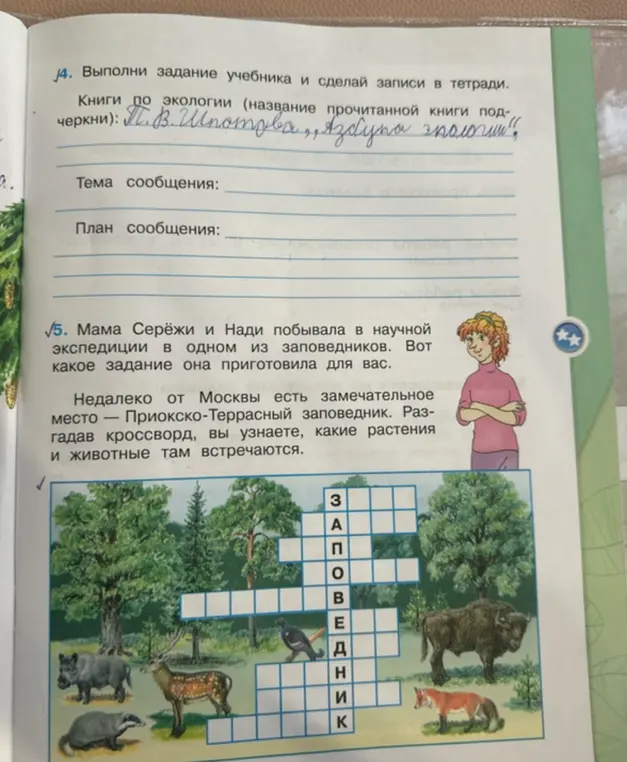 4. Выполни задание учебника и сделай записи в тетради.
Книги по экологии (название прочитанной книги под-
черкни): Т. В. Шпотова „Азбука экологии“.
Тема сообщения:
План сообщения:
5. Мама Серёжи и Нади побывала в научной
экспедиции в одном из заповедников. Вот
какое задание она приготовила для вас.
Недалеко от Москвы есть замечательное
место — Приокско-Террасный заповедник. Раз-
гадав кроссворд, вы узнаете, какие растения
и животные там встречаются.
З
А
П
О
В
Е
Д
Н
И
К